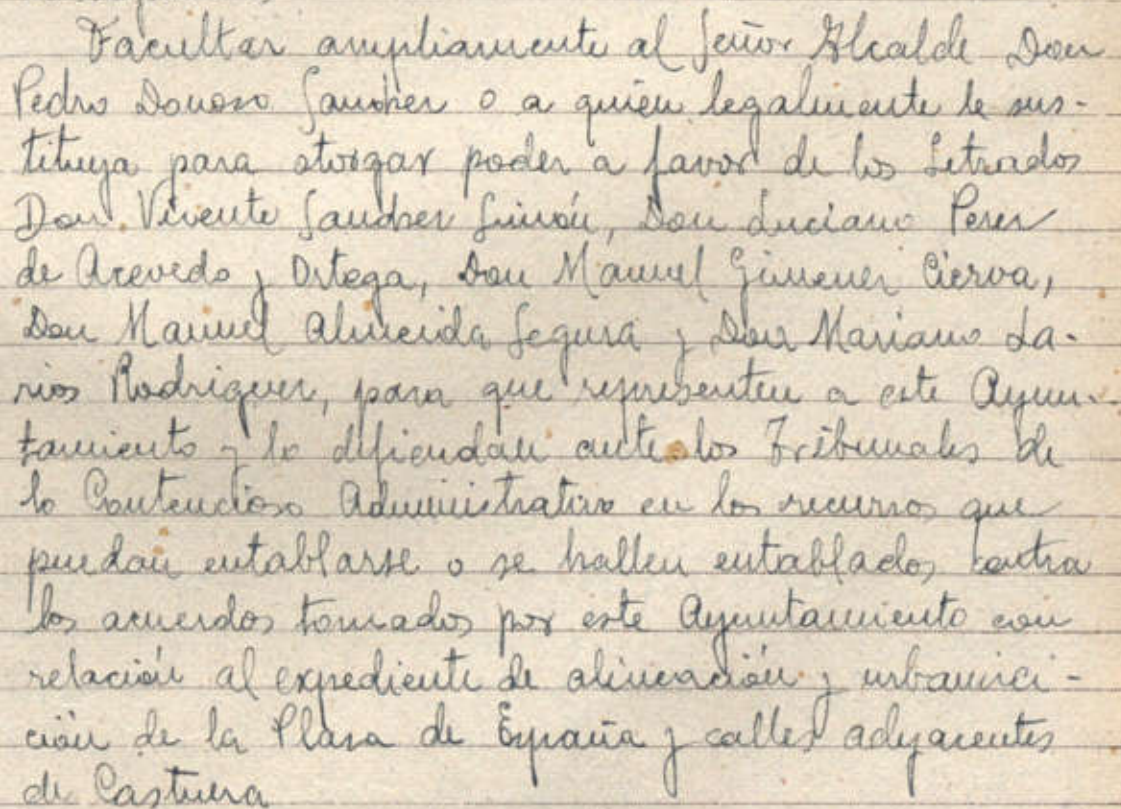 Facultar ampliamente al Señor Alcalde Don
Pedro Donoso Sanchez o a quien legalmente le sus-
tituya para otorgar poder a favor de los Letrados
Don Vicente Sanchez Simón, Don Luciano Perez
de Acevedo y Ortega, Don Manuel Gimenez Cierva,
Don Manuel Almeida Segura y Don Mariano La-
rios Rodriguez, para que representen a este Ayun-
tamiento y lo defiendan ante los Tribunales de
lo Contencioso Administrativo en los recursos que
puedan entablarse o se hallen entablados contra
los acuerdos tomados por este Ayuntamiento con
relación al expediente de alineación y urbanici-
ción de la Plaza de España y calles adyacentes
de Castuera